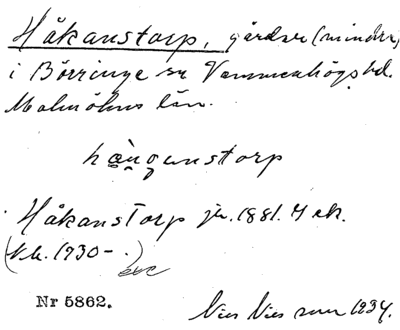 Håkanstorp, gårdar (mindre)
i Börringe sn Vemmenhögs hd.
Malmöhus län.
hạ̊ŋanstorp
Håkanstorp jr. 1881. 4 ek.
Nr 5862.
Nils Nilsson 1934.